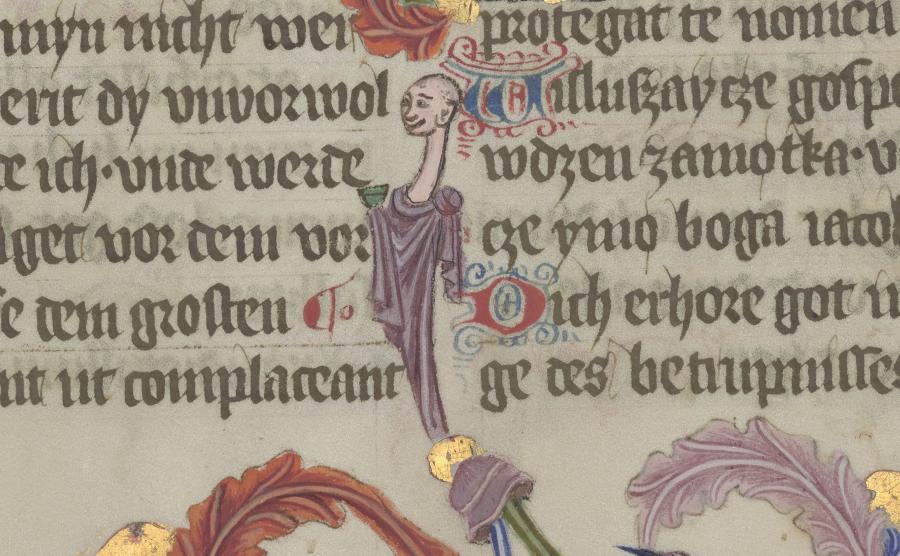 myn nicht wer
erit dy vnvorwol
te ich·vnde werde
get vor dem vor
se dem grosten To
nt ut complaceant
protegat te nomen
Uisluszay cze gospo
wdzen zamotka·v
cze ymo boga iacob
Dich erhore got
ge des betrupnisses